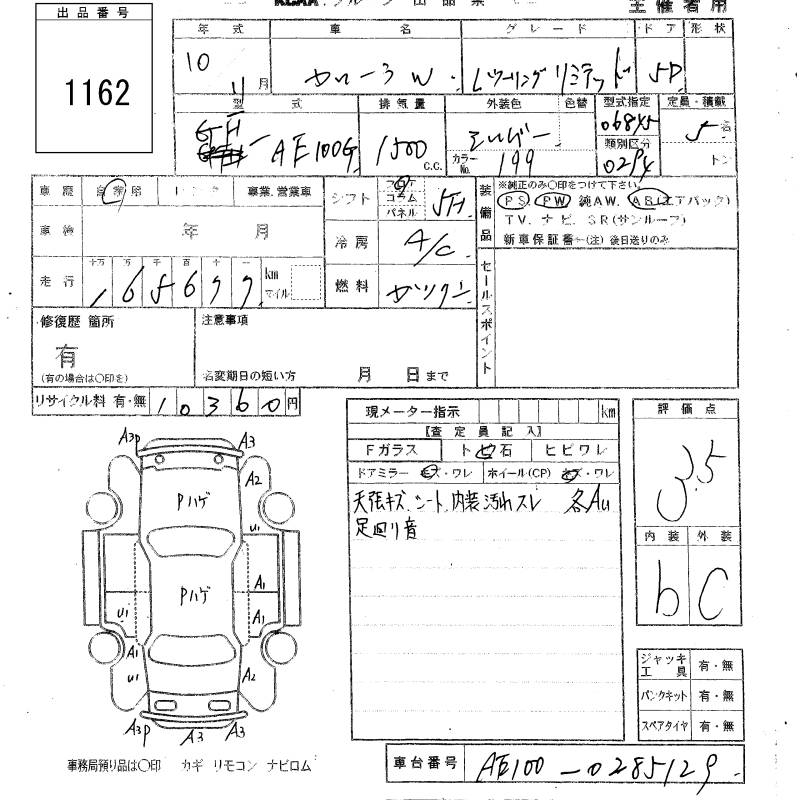 主催者用
出品番号
1162
年式 車名 グレード ドア 形状
10 11月 カローラW Lツーリングリミテッド 5D
型式 排気量 外装色 色替 型式指定 定員・積載
GF- AE100G 1500 c.c. シルバー カラーNo. 199 06845 類別区分 0294 5名 トン
車歴 自家用 レンタ 事業.営業車 シフト フロア コラム パネル 5F
車検 年 月 冷房 A/C
走行 十万 万 千 百 十 一 165677 km マイル 燃料 ガソリン
装備品 ※純正のみ〇印をつけて下さい。
PS. PW 純AW. AB(エアバック)
TV. ナビ. SR(サンルーフ)
新車保証書-(注) 後日送りのみ
セールスポイント
修復歴 箇所 注意事項
有
(有の場合は〇印を) 名変期日の短い方 月 日まで
リサイクル料 有・無 10360円
現メーター指示 km 評価点
【査定員記入】 3.5
Fガラス ト 石 ヒビワレ
ドアミラー キズ・ワレ ホイール(CP) キズ・ワレ
天張キズ、シート、内装汚れスレ 各Au
足廻り音
内装 外装
b C
A3P A3
A2
Pハゲ
U1
A1
Pハゲ
U1 A1
A1
U1 A2
A3P A3 A3
ジャッキ工具 有・無
パンクキット 有・無
スペアタイヤ 有・無
事務局預り品は〇印 カギ リモコン ナビロム
車台番号 AE100-0285129